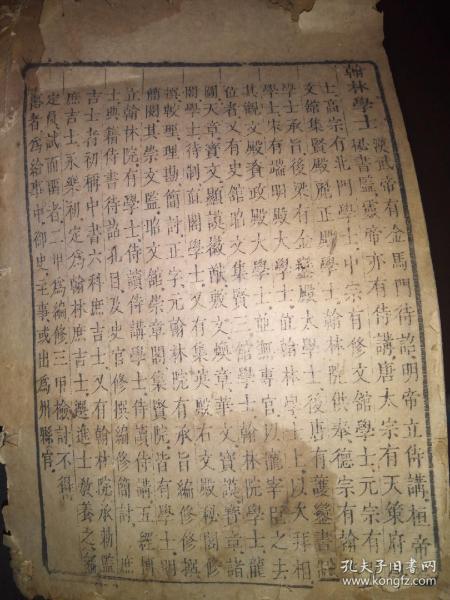 翰林學士
漢武帝有金馬門待詔明帝立侍講桓帝
秘書監靈帝亦有侍講唐太宗有天策府
士高宗有北門學士中宗有修文館學士元宗有
文館集賢殿麗正殿學士翰林院供奉德宗有翰
學士承旨後梁有金鑾殿大學士後唐有護鑾書制
學士宋有端明殿大學士並翰林學士上以次拜相
其觀文殿資政殿大學士並無專官以寵宰臣之去
位者又有史館昭文集賢三館學士翰林院學士龍
圖天章寶文顯謨徽猷敷文煥章華文寶謨寶章諸
閣學士待制直閣學士又有集英殿右文殿秘閣修
撰較理勘簡討正字元翰林院有承旨編修修學明
簡閱其崇文監昭文館崇章閣集賢院皆有學士明
立翰林院有學士侍讀侍講學士侍讀侍講五經博
士典籍侍書待詔孔目及史官修撰編修簡討庶
吉士者初稱中書六科庶吉士又有翰林院承敕監
庶吉士永樂初定為翰林庶吉士選進士教養之
定員試而留者二甲為編修三甲檢討不得
者為給事中御史主事或出為州縣官
孔夫子旧书网
book.kongfz.com